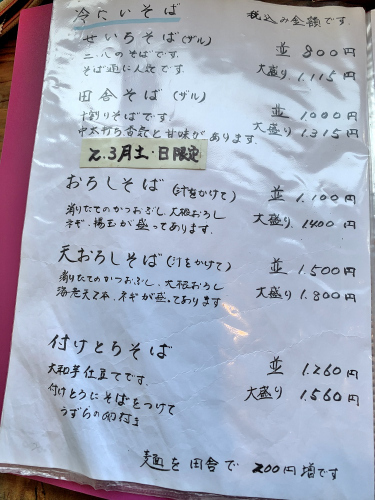 冷たいそば 税込み金額です。
せいろそば(ザル) 並 800円
二.八のそばです. 大盛り 1.115円
そば通に人気です.
田舎そば(ザル) 並 1000円
十割りそばです. 大盛り 1.315円
中太打ち香気と甘味があります.
2.3月土・日限定
おろしそば(汁をかけて) 並 1.100円
削りたてのかつおぶし.大根おろし 大盛り 1400円
ネギ.揚玉が盛ってあります.
天おろしそば(汁をかけて) 並 1.500円
削りたてのかつおぶし.大根おろし 大盛り 1.800円
海老天2本.ネギが盛ってあります
付けとろそば 並 1.260円
大和芋仕立てです. 大盛り 1.560円
付けとろにそばをつけて
うずらの卵付き
麺を田舎で 200円増です.